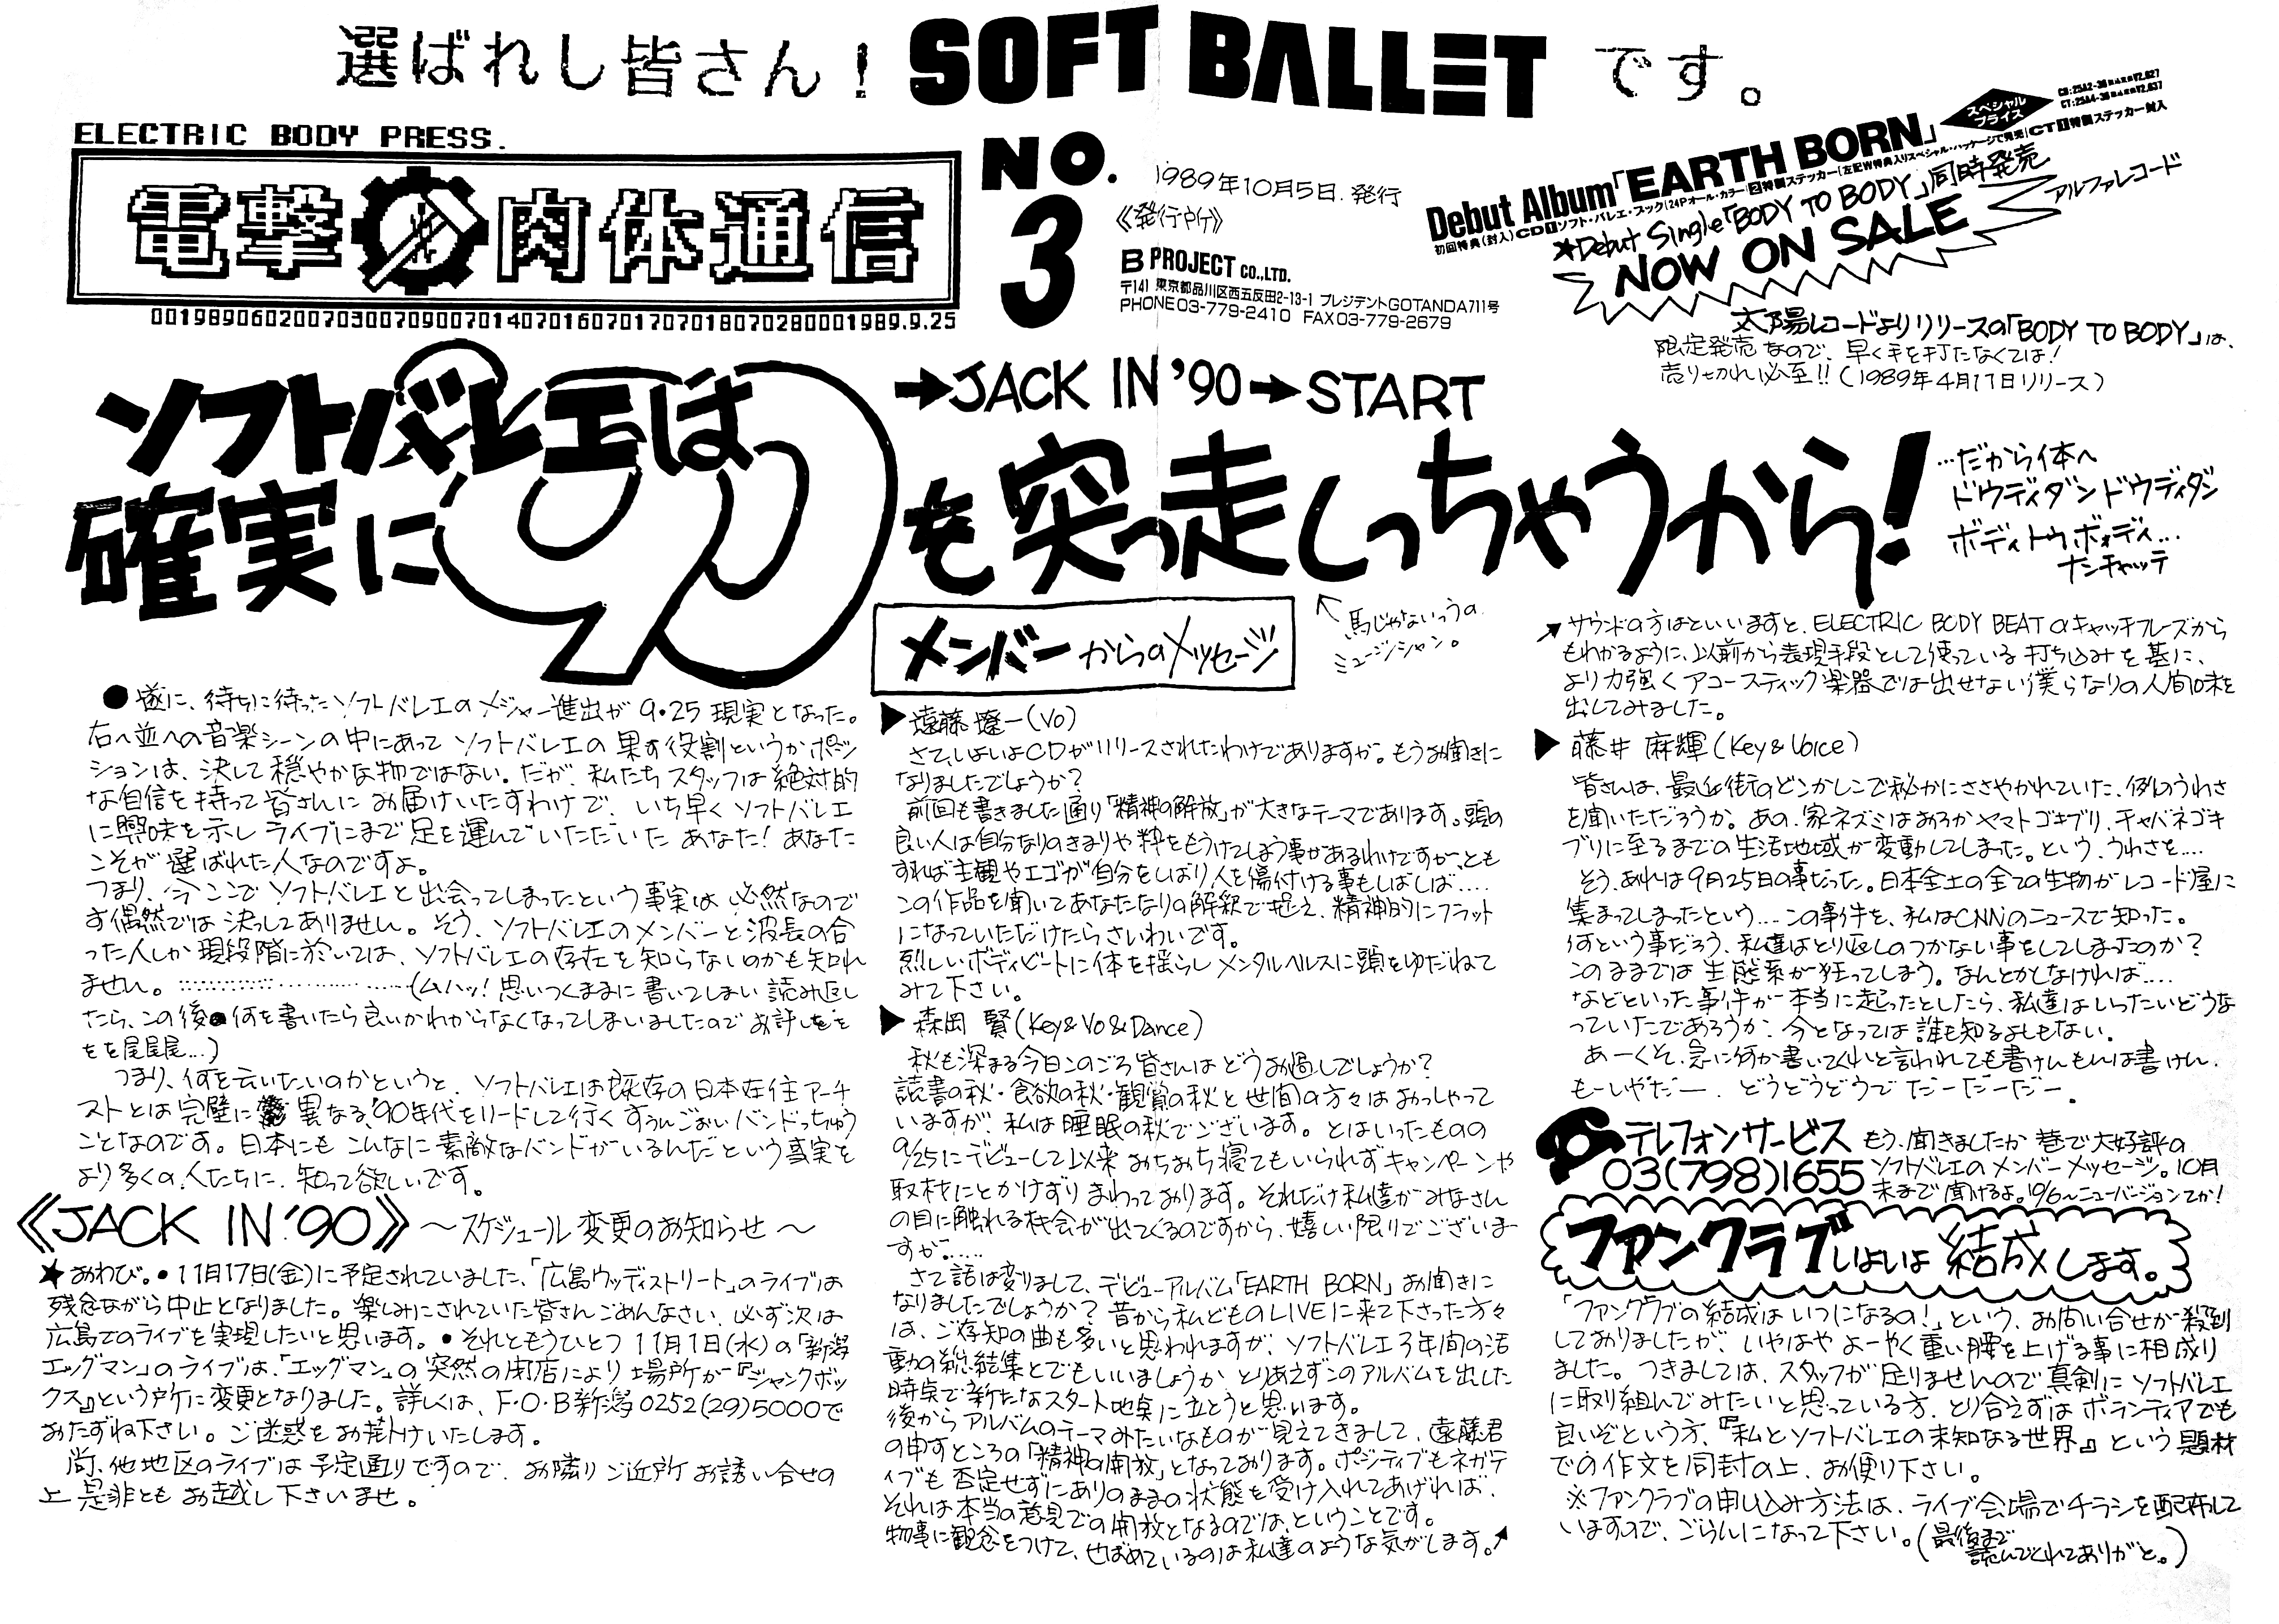 選ばれし皆さん! SOFT BALLET です。
ELECTRIC BODY PRESS.
電撃 肉体通信
00198906020070300709007014070160701707018070280001989.9.25
NO.
3
1989年10月5日.発行
《発行所》
B PROJECT CO.,LTD.
〒141 東京都品川区西五反田2-13-1 プレジデントGOTANDA711号
PHONE03-779-2410 FAX03-779-2679
スペシャル
プライス
Debut Album「EARTH BORN」
★Debut Single「BODY TO BODY」同時発売
NOW ON SALE
アルファレコード
太陽レコードよりリリースの「BODY TO BODY」は、
限定発売なので、早く手を打たなくては!
売り切れ必至!!(1989年4月17日リリース)
→JACK IN '90→START
ソフトバレエは
確実に90も突っ走しっちゃうから!
…だから体へ
ドウディダンドウディダン
ボディトゥボォディ…
ナンチャッテ
↑馬じゃないっうの
ミュージシャン。
メンバーからのメッセージ
●遂に、待ちに待ったソフトバレエのメジャー進出が9・25現実となった。
右へ並への音楽シーンの中にあってソフトバレエの果す役割というかポジ
ションは、決して穏やかな物ではない。だが、私たちスタッフは絶対的
な自信を持って皆さんにお届けいたすわけで、いち早くソフトバレエ
に興味を示しライブにまで足を運んでいただいたあなた!あなた
こそが選ばれた人なのですよ。
つまり、今ここでソフトバレエと出会ってしまったという事実は必然なので
す偶然では決してありません。そう、ソフトバレエのメンバーと波長の合
った人しか現段階に於いては、ソフトバレエの存在を知らないのかも知れ
ません。……………………(ムハッ!思いつくままに書いてしまい読み返し
たら、この後何を書いたら良いかわからなくなってしまいましたのでお許しをを
をを尾尾尾…)
つまり、何を云いたいのかというと、ソフトバレエは既存の日本在住アーチ
ストとは完璧に異なる、'90年代をリードして行くすぅんごぉいバンドっちゅう
ことなのです。日本にもこんなに素敵なバンドがいるんだという事実を
より多くの人たちに、知って欲しいです。
《JACK IN '90》～スケジュール変更のお知らせ～
★おわび。●11月17日(金)に予定されていました、「広島ウッディストリート」のライブは
残念ながら中止となりました。楽しみにされていた皆さんごめんなさい、必ず次は
広島でのライブを実現したいと思います。●それともうひとつ11月1日(水)の「新潟
エッグマン」のライブは、「エッグマン」の突然の閉店により場所が『ジャンクボッ
クス』という所に変更となりました。詳しくは、F・O・B新潟0252(29)5000で
おたずね下さい。ご迷惑をお掛けいたします。
尚、他地区のライブは予定通りですので、お隣りご近所お誘い合せの
上是非ともお越し下さいませ。
▶遠藤遼一(Vo)
さて、いよいよCDがリリースされたわけでありますが。もうお聞きに
なりましたでしょうか?
前回も書きました通り「精神の解放」が大きなテーマであります。頭の
良い人は自分なりのきまりや枠をもうけてしまう事があるわけですが、とも
すれば主観やエゴが自分をしばり人を傷付ける事もしばしば….
この作品を聞いてあなたなりの解釈で捉え、精神的にフラット
になっていただけたらさいわいです。
烈しいボディビートに体を揺らしメンタルヘルスに頭をゆだねて
みて下さい。
▶森岡 賢(Key&Vo&Dance)
秋も深まる今日このごろ皆さんはどうお過しでしょうか?
読書の秋・食欲の秋・観賞の秋と世間の方々はおっしゃって
いますが、私は睡眠の秋でございます。とはいったものの
9/25にデビューして以来おちおち寝てもいられずキャンペーンや
取材にとかけずりまわっております。それだけ私達がみなさん
の目に触れる機会が出てくるのですから、嬉しい限りでございま
すが……
さて話は変りまして、デビューアルバム「EARTH BORN」お聞きに
なりましたでしょうか?昔から私どものLIVEに来て下さった方々
は、ご存知の曲も多いと思われますが、ソフトバレエ3年間の活
動の総結集とでもいいましょうかとりあえずこのアルバムを出した
時点で新たなスタート地点に立とうと思います。
後からアルバムのテーマみたいなものが見えてきまして、遠藤君
の申すところの「精神の開放」となっております。ポジティブもネガテ
ィブも否定せずにありのままの状態を受け入れてあげれば、
それは本当の意見での開放となるのでは、ということです。
物事に観念をつけて、せばめているのは私達のような気がします。↗
↗サウンドの方はといいますと、ELECTRIC BODY BEATのキャッチフレーズから
もわかるように、以前から表現手段として使っている打ち込みを基に、
より力強くアコースティック楽器では出せない僕らなりの人間味を
出してみました。
▶藤井 麻輝(Key&Voice)
皆さんは、最近街のどこかしこで秘かにささやかれていた、例のうわさ
を聞いただろうか。あの、家ネズミはおろかヤマトゴキブリ、チャバネゴキ
ブリに至るまでの生活地域が変動してしまった。という、うわさを….
そう、あれは9月25日の事だった。日本全土の全ての生物がレコード屋に
集まってしまったという…この事件を、私はCNNのニュースで知った。
何という事だろう、私達はとり返しのつかない事をしてしまったのか?
このままでは生態系が狂ってしまう。なんとかしなければ….
などといった事件が本当に起ったとしたら、私達はいったいどうな
っていたであろうか、今となっては誰も知るよしもない。
あーくそ、急に何か書いてくれと言われても書けんもんは書けん.
もーしゃだー.どうどうどうでだーだーだー.
テレフォンサービス
03(798)1655
もう、聞きましたか巷で大好評の
ソフトバレエのメンバーメッセージ。10月
末まで聞けるよ。10/6～ニューバージョンでか!
ファンクラブいよいよ結成します。
「ファンクラブの結成はいつになるの!」という、お問い合せが殺到
しておりましたが、いやはやよーやく重い腰を上げる事に相成り
ました。つきましては、スタッフが足りませんので真剣にソフトバレエ
に取り組んでみたいと思っている方、とり合えずはボランティアでも
良いぞという方、『私とソフトバレエの未知なる世界』という題材
での作文を同封の上、お便り下さい。
※ファンクラブの申し込み方法は、ライブ会場でチラシを配布して
いますので、ごらんになって下さい。(最後まで
読んでくれてありがと。)